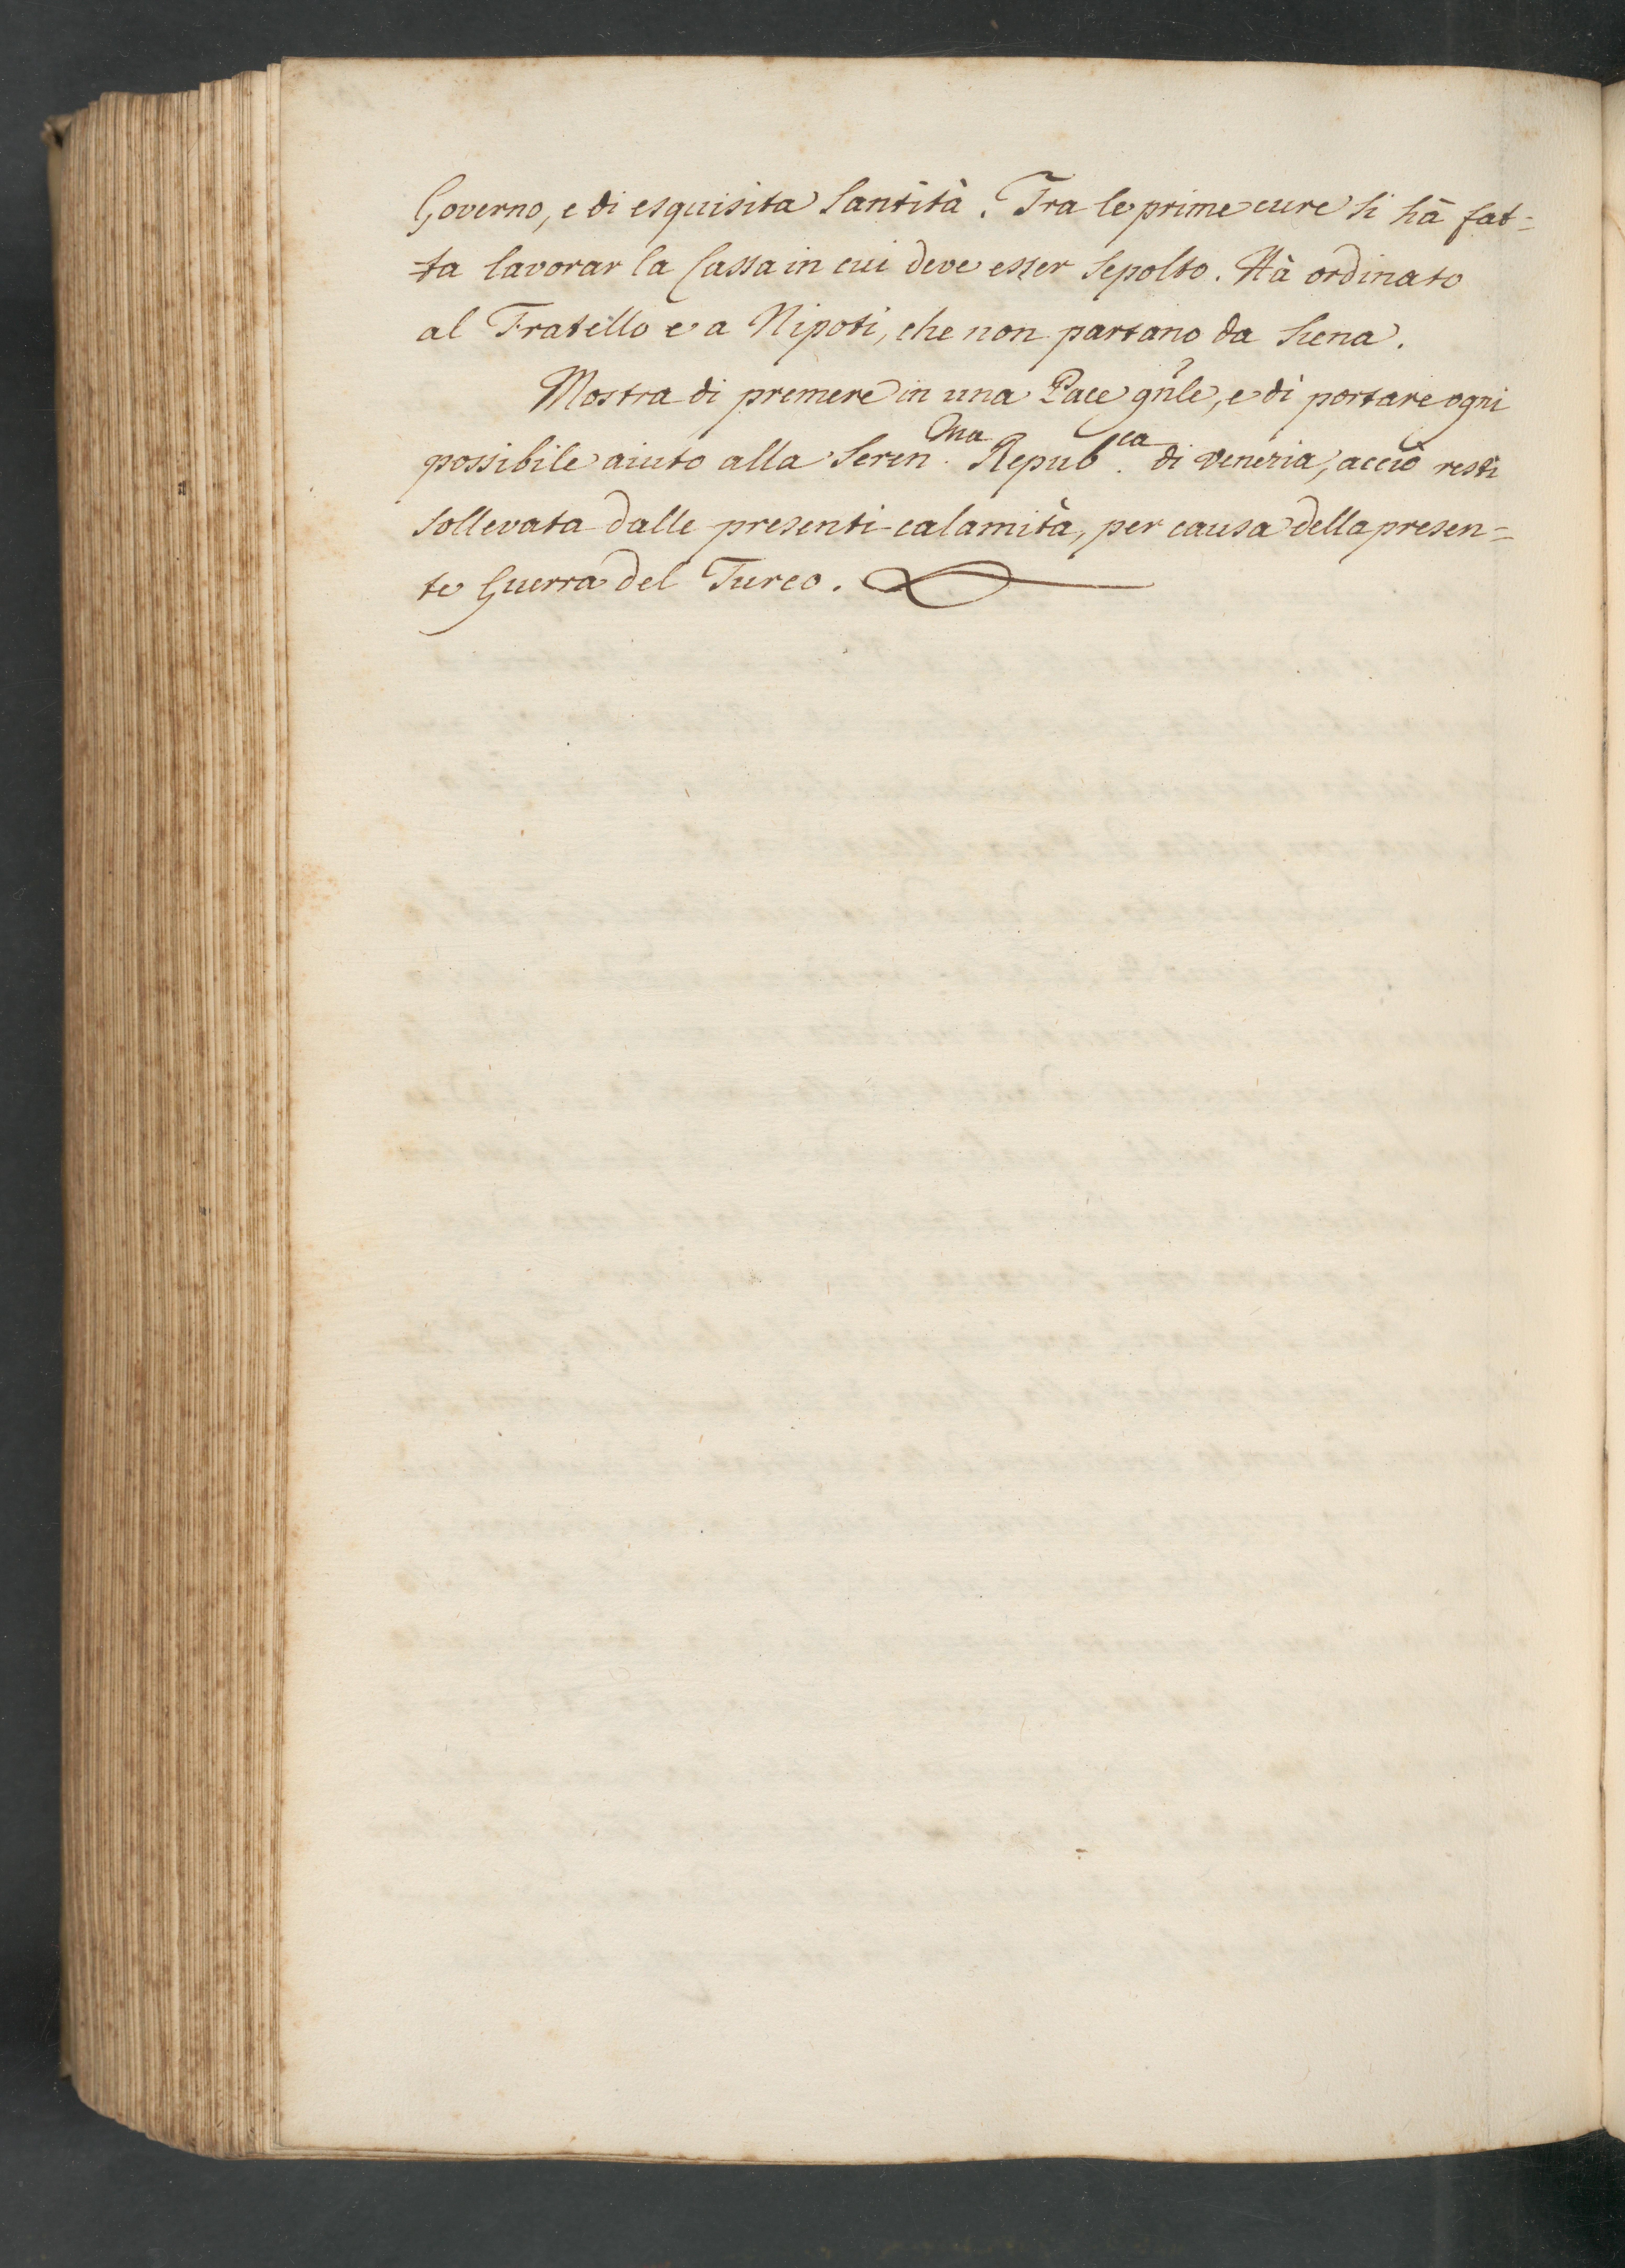 Governo, e di esquisita Santità. Tra le prime cure si hà fat=
=ta lavorar la Cassa in cui deve esser Sepolto. Hà ordinato
al Fratello e a Nipoti, che non partano da Siena.
Mostra di premere in una Pace gñle, e di portare ogni
possibile aiuto alla Seren.ma Repub.ca di Venezia, acciò resti
sollevata dalle presenti calamità, per causa della presen=
te Guerra del Turco.